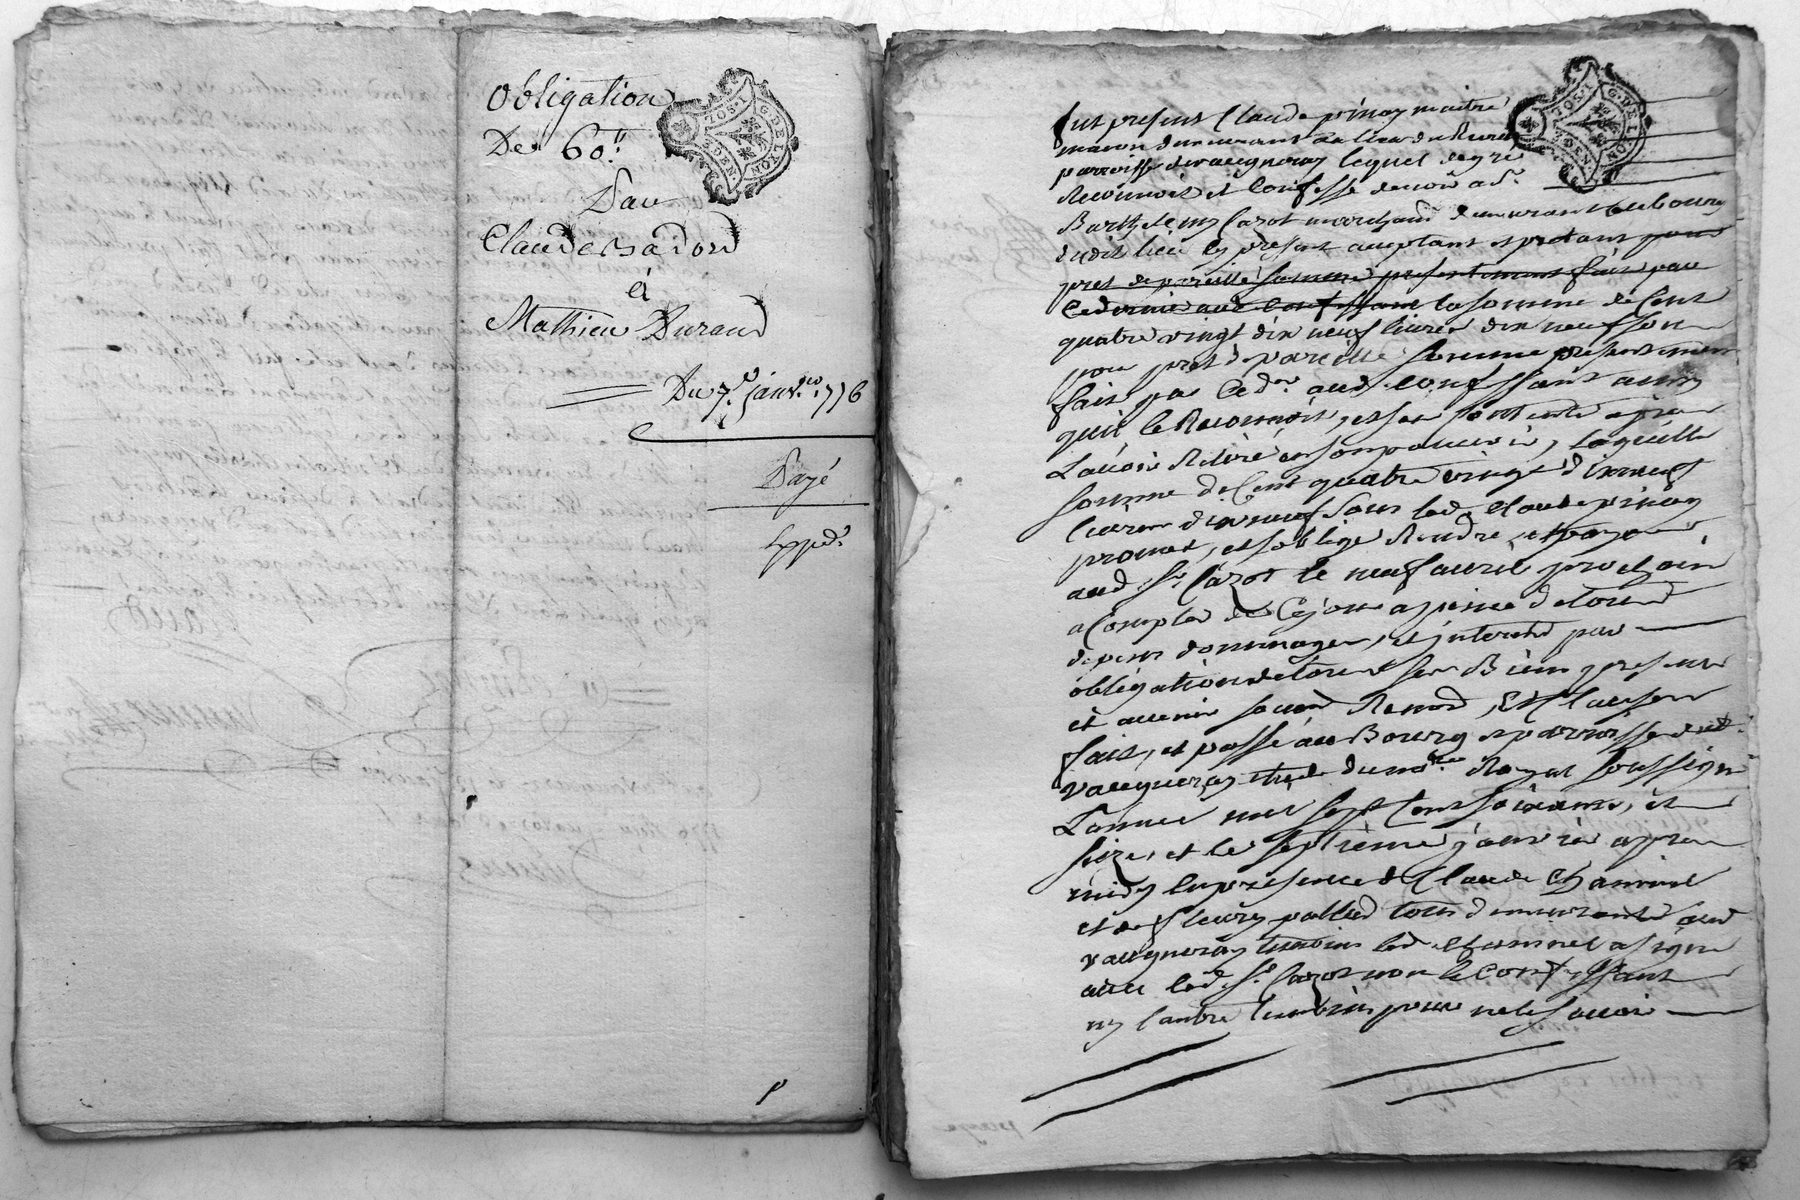 Obligation
De 60.tt
Par
Claude Badord
à
Mathieu Durand
Du 7.e janv.er 1776
Payé
Exped.
G. DE LYON
2 DEN.
fut présent Claude pinay maitre
macon demeurant au lieu du
parroisse de vaugneray lequel de gré
Reconnoit et Confesse devoir a Sr.
Barthelemy Cazot marchand demeurant au bourg
dudit lieu cy présent acceptant et pretant pour
pret de pareille somme presentement fait par
Ce dernier aud. Confessant la somme de Cent
quatre vingt dix neuf livres dix neuf sous
pour pret de pareille somme presentement
fait par Ced.er aud. Confessant ainsy
quil le Reconnoit, et se contente apres
Lavoir Retiré en son pouvoir, laquelle
somme de Cent quatre vingt dixneuf
livres dixneuf sous led. Claude pinay
promet, et soblige Rendre, et payer
aud. Sr. Cazot le neuf avril prochain
a Compter de Ce jour a peine de tous
depens dommages, et interets par
obligation de tous ses Biens presents
et avenir soumis Renond, Et Clauses
fait, et passé au Bourg et parroisse dud.
vaugneray Etude du no.re Royal soussigné
L'année mil sept Cent soixante, et
seize, et le septieme janvier apres
midy En presence de Claude Chaminet
et de fleury pallud tous demeurants aud.
vaugneray temoins led. Chaminet a signé
avec led. Sr. Cazot non le Confessant
ny l'autre temoin pour ne le savoir